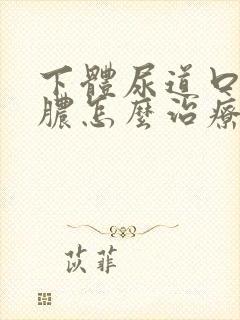 下體尿道口
膿怎麼治療
苡菲